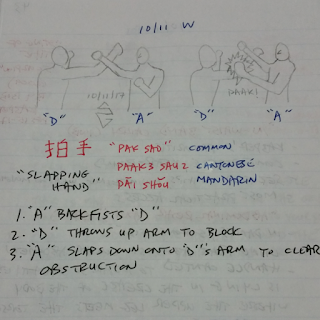 10/11 W
10/11/17
PAAK!
"D" "A" "D" "A"
拍手 "PAK SAO" COMMON
PAAK3 SAU2 CANTONESE
"SLAPPING HAND"
PĀI SHOU MANDARIN
1. "A" BACKFISTS "D"
2. "D" THROWS UP ARM TO BLOCK
3. "A" SLAPS DOWN ONTO "D"'S ARM TO CLEAR
OBSTRUCTION